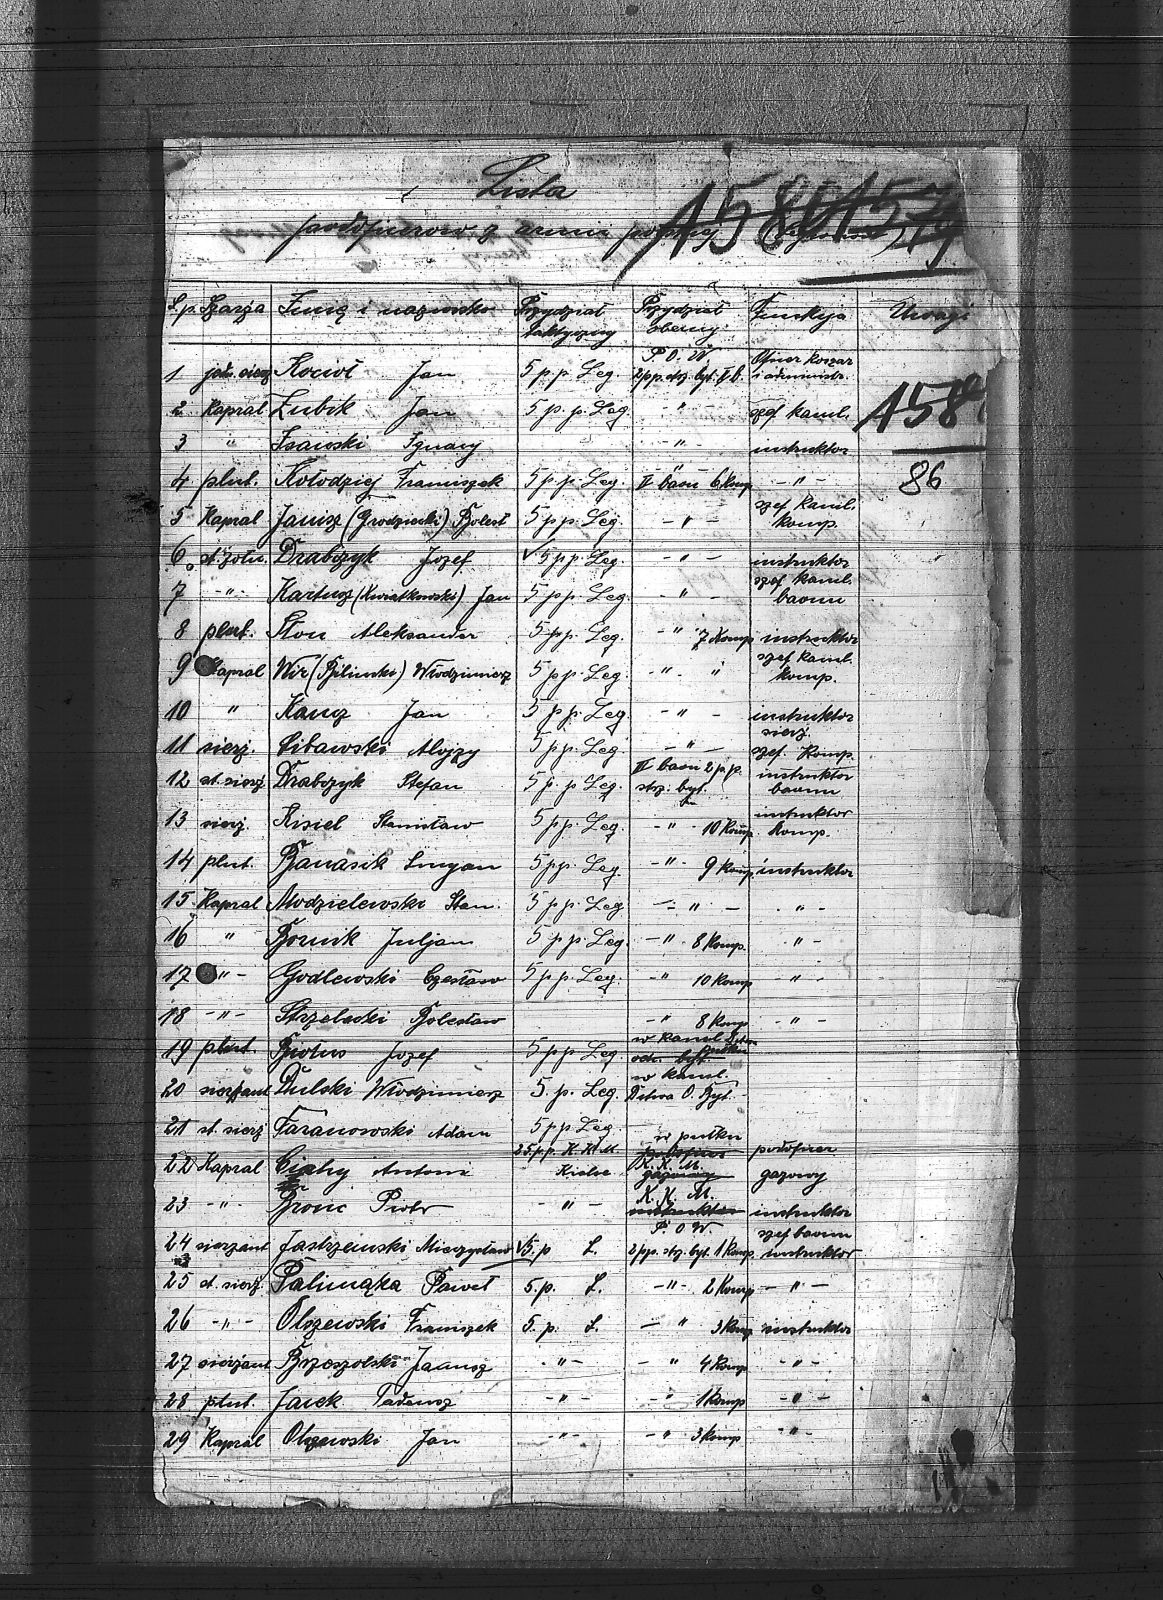 Lista
podoficerów z armii
1580 1579
L.p. Szarża Imię i nazwisko Przydział taktyczny Przydział obecny Funkcja Uwagi
1 Kocioł Jan 5 p.p. Leg. P.O.W. 2 p.p. strz. byt. V b. Oficer koszar i administr.
2 Kapral Zubik Jan 5 p.p. Leg. -"- szef kanc. 158
3 " Isawski Ignacy -"- instruktor
4 plut. Kołodziej Franciszek 5 p.p. Leg. II baon 6 Komp -"- 86
5 Kapral Janisz (Grodziecki) Bolesł 5 p.p. Leg. -"- szef kanc. komp.
6 st. żołn. Drabczyk Józef 5 p.p. Leg. -"- instruktor
7 -"- Kartusz (Kwiatkowski) Jan 5 p.p. Leg. -"- szef kanc. baonu
8 plut. Słoń Aleksander 5 p.p. Leg. -"- 7 Komp instruktor
9 Kapral Wir (Biliński) Włodzimierz 5 p.p. Leg. -"- " szef kanc. komp.
10 " Kancz Jan 5 p.p. Leg. -"- instruktor
11 sierż. Libawski Alojzy 5 p.p. Leg. -"- sierż. szef. Komp.
12 st. sierż. Drabczyk Stefan 5 p.p. Leg. II baon 2 p.p. strz. byt. instruktor baonu
13 sierż. Kisiel Stanisław 5 p.p. Leg. -"- 10 Komp. instruktor Komp.
14 plut. Banasik Lucyan 5 p.p. Leg. -"- 9 Komp. instruktor
15 Kapral Modzielewski Stan. 5 p.p. Leg -"- -"-
16 " Bornik Juljan 5 p.p. Leg -"- 8 Komp. -"-
17 -"- Godlewski Czesław 5 p.p. Leg. -"- 10 Komp -"-
18 -"- Strzelecki Bolesław -"- 8 Komp -"-
19 plut. Biotus Józef 5 p.p. Leg. w kancel.
20 sierżant Dulski Włodzimierz 5 p. Leg. w kancel. D-twa O. Byt.
21 st. sierż Taranowski Adam 5 p.p. Leg. w pułku
22 Kapral Cichy Antoni 25 p.p. K.K.M. Kielce K.K.M. gazowy podoficer gazowy
23 -"- Bronc Piotr -"- K.K.M. instruktor instruktor
24 sierżant Jastrzemski Mieczysław 5. p L. P.O.W. 2 p.p. strz. byt. 1 Komp. szef baonu instruktor
25 st. sierż. Palmąka Paweł 5. p. L. -"- 2 Komp -"-
26 -"- Olszewski Franciszek 5. p. L. -"- 3 Komp instruktor
27 sierżant Brzoszolski Janusz -"- -"- 4 Komp -"-
28 plut. Jacek Tadeusz -"- -"- 1 Komp -"-
29 Kapral Olszewski Jan -"- -"- 3 Komp -"-